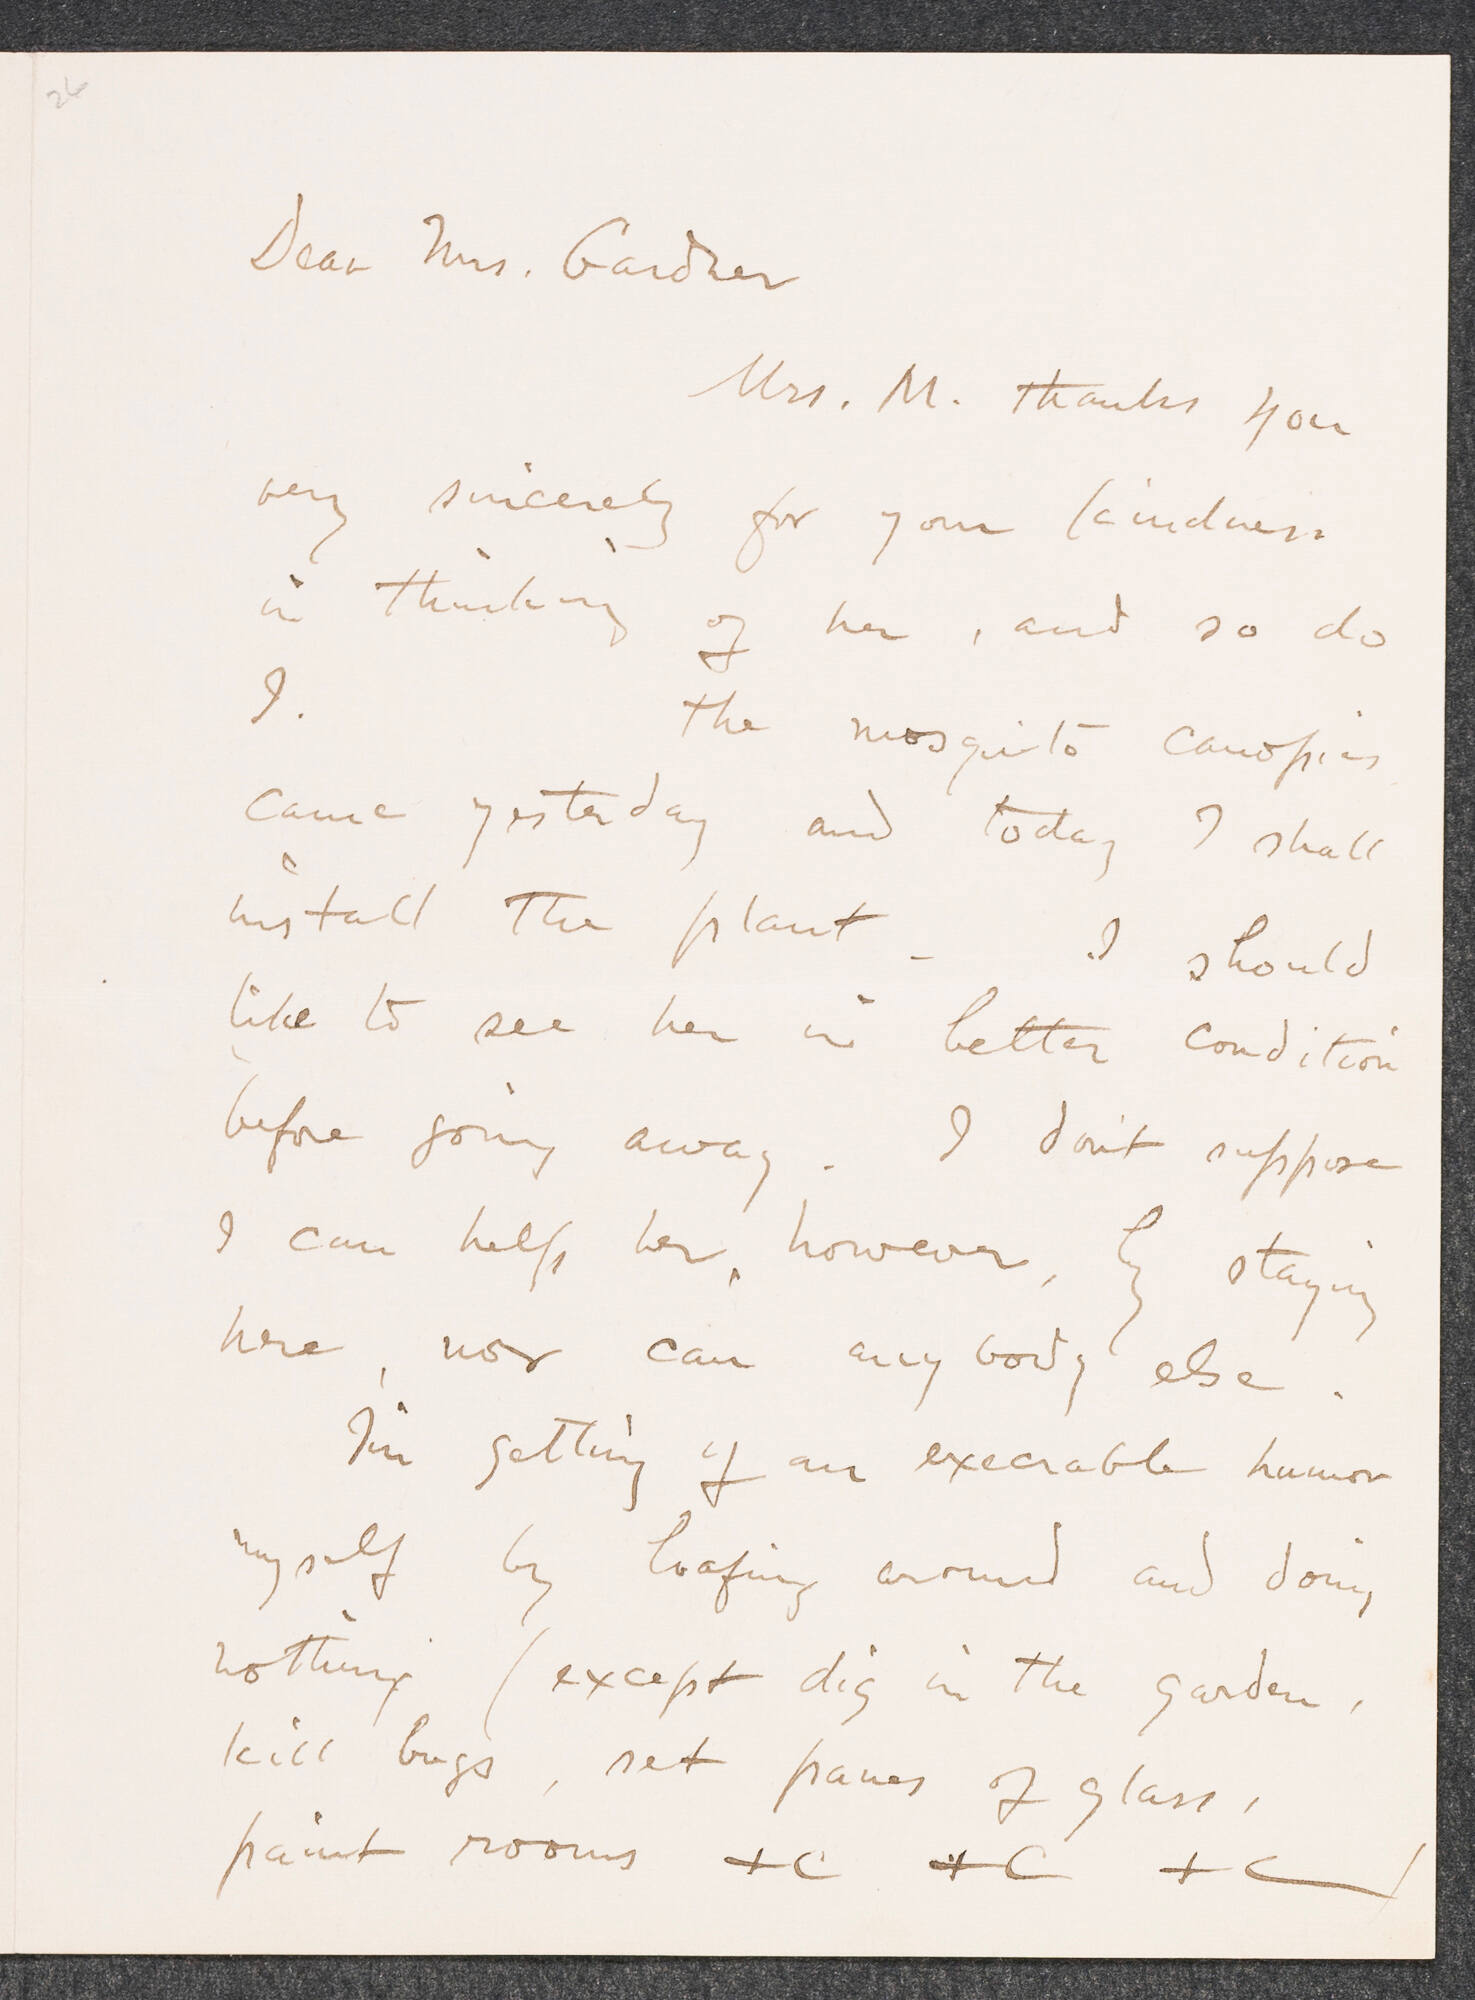 26
Dear Mrs. Gardner
Mrs. M. thanks you
very sincerely for your kindness
in thinking of her, and so do
I. The mosquito canopies
came yesterday and today I shall
install the plant - I should
like to see her in better condition
before going away. I don't suppose
I can help her, however, by staying
here, nor can anybody else.
I'm getting of an execrable humor
myself by loafing around and doing
nothing (except dig in the garden,
kill bugs, set panes of glass,
paint rooms +c +c +c)